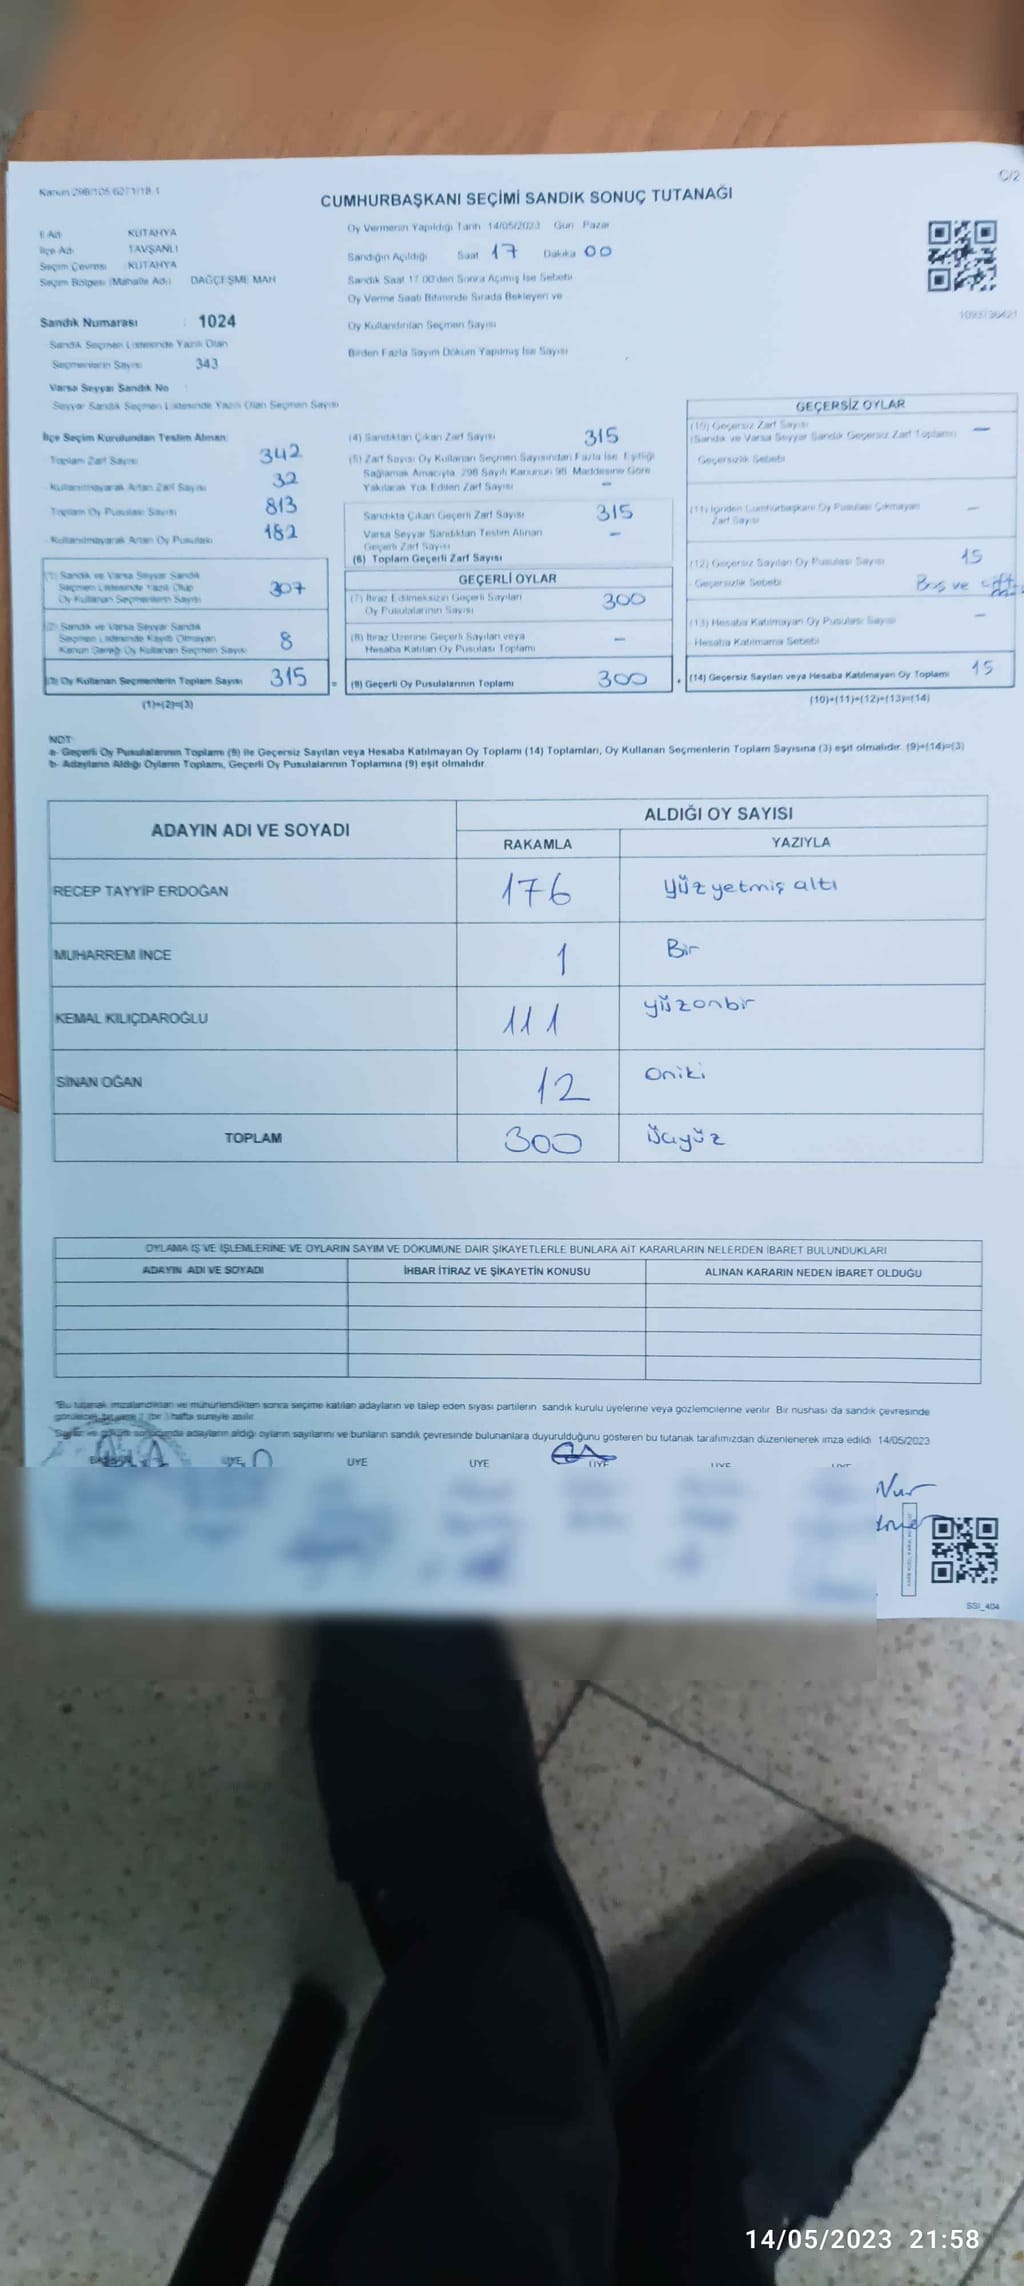 Kanun 298/105 6271/18 1
C/2
CUMHURBAŞKANI SEÇİMİ SANDIK SONUÇ TUTANAĞI
İl Adı KÜTAHYA
İlçe Adı TAVŞANLI
Seçim Çevresi KÜTAHYA
Seçim Bölgesi (Mahalle Adı) DAĞÇEŞME MAH
Oy Vermenin Yapıldığı Tarih 14/05/2023 Gün Pazar
Sandığın Açıldığı Saat 17 Dakika 00
Sandık Saat 17 00'den Sonra Açımış İse Sebebi
Oy Verme Saati Bitiminde Sırada Bekleyen ve
Oy Kullandırılan Seçmen Sayısı
Birden Fazla Sayım Döküm Yapılmış İse Sayısı
Sandık Numarası : 1024
Sandık Seçmen Listesinde Yazılı Olan
Seçmenlerin Sayısı 343
Varsa Seyyar Sandık No :
Seyyar Sandık Seçmen Listesinde Yazılı Olan Seçmen Sayısı
İlçe Seçim Kurulundan Teslim Alınan:
Toplam Zarf Sayısı 342
Kullanılmayarak Artan Zarf Sayısı 32
Toplam Oy Pusulası Sayısı 813
Kullanılmayarak Artan Oy Pusulası 182
(1) Sandık ve Varsa Seyyar Sandık
Seçmen Listesinde Yazılı Olup
Oy Kullanan Seçmenlerin Sayısı 307
(2) Sandık ve Varsa Seyyar Sandık
Seçmen Listesinde Kayıtlı Olmayan
Kanun Gereği Oy Kullanan Seçmen Sayısı 8
(3) Oy Kullanan Seçmenlerin Toplam Sayısı 315
(1)+(2)=(3)
(4) Sandıktan Çıkan Zarf Sayısı 315
(5) Zarf Sayısı Oy Kullanan Seçmen Sayısından Fazla İse, Eşitliği
Sağlamak Amacıyla, 298 Sayılı Kanunun 98. Maddesine Göre
Yakılarak Yok Edilen Zarf Sayısı –
Sandıkta Çıkan Geçerli Zarf Sayısı 315
Varsa Seyyar Sandıktan Teslim Alınan
Geçerli Zarf Sayısı –
(6) Toplam Geçerli Zarf Sayısı
GEÇERLİ OYLAR
(7) İtiraz Edilmeksizin Geçerli Sayılan
Oy Pusulalarının Sayısı 300
(8) İtiraz Üzerine Geçerli Sayılan veya
Hesaba Katılan Oy Pusulası Toplamı –
= (9) Geçerli Oy Pusulalarının Toplamı 300
GEÇERSİZ OYLAR
(10) Geçersiz Zarf Sayısı
(Sandık ve Varsa Seyyar Sandık Geçersiz Zarf Toplamı) –
Geçersizlik Sebebi
(11) İçinden Cumhurbaşkanı Oy Pusulası Çıkmayan
Zarf Sayısı –
(12) Geçersiz Sayılan Oy Pusulası Sayısı 15
Geçersizlik Sebebi Boş ve
(13) Hesaba Katılmayan Oy Pusulası Sayısı –
Hesaba Katılmama Sebebi
+ (14) Geçersiz Sayılan veya Hesaba Katılmayan Oy Toplamı 15
(10)+(11)+(12)+(13)=(14)
NOT:
a- Geçerli Oy Pusulalarının Toplamı (9) ile Geçersiz Sayılan veya Hesaba Katılmayan Oy Toplamı (14) Toplamları, Oy Kullanan Seçmenlerin Toplam Sayısına (3) eşit olmalıdır. (9)+(14)=(3)
b- Adayların Aldığı Oyların Toplamı, Geçerli Oy Pusulalarının Toplamına (9) eşit olmalıdır
ADAYIN ADI VE SOYADI
ALDIĞI OY SAYISI
RAKAMLA YAZIYLA
RECEP TAYYİP ERDOĞAN 176 yüzyetmiş altı
MUHARREM İNCE 1 Bir
KEMAL KILIÇDAROĞLU 111 yüzonbir
SİNAN OĞAN 12 oniki
TOPLAM 300 üçyüz
OYLAMA İŞ VE İŞLEMLERİNE VE OYLARIN SAYIM VE DÖKÜMÜNE DAİR ŞİKAYETLERLE BUNLARA AİT KARARLARIN NELERDEN İBARET BULUNDUKLARI
ADAYIN ADI VE SOYADI İHBAR İTİRAZ VE ŞİKAYETİN KONUSU ALINAN KARARIN NEDEN İBARET OLDUĞU
*Bu tutanak imzalandıktan ve mühürlendikten sonra seçime katılan adayların ve talep eden siyasi partilerin sandık kurulu üyelerine veya gözlemcilerine verilir Bir nushası da sandık çevresinde
(bir) hafta süreyle asılır
adayların aldığı oyların sayılarını ve bunların sandık çevresinde bulunanlara duyurulduğunu gösteren bu tutanak tarafımızdan düzenlenerek imza edildi 14/05/2023
BAŞKAN ÜYE ÜYE ÜYE ÜYE
Nur
SSI_404
14/05/2023 21:58